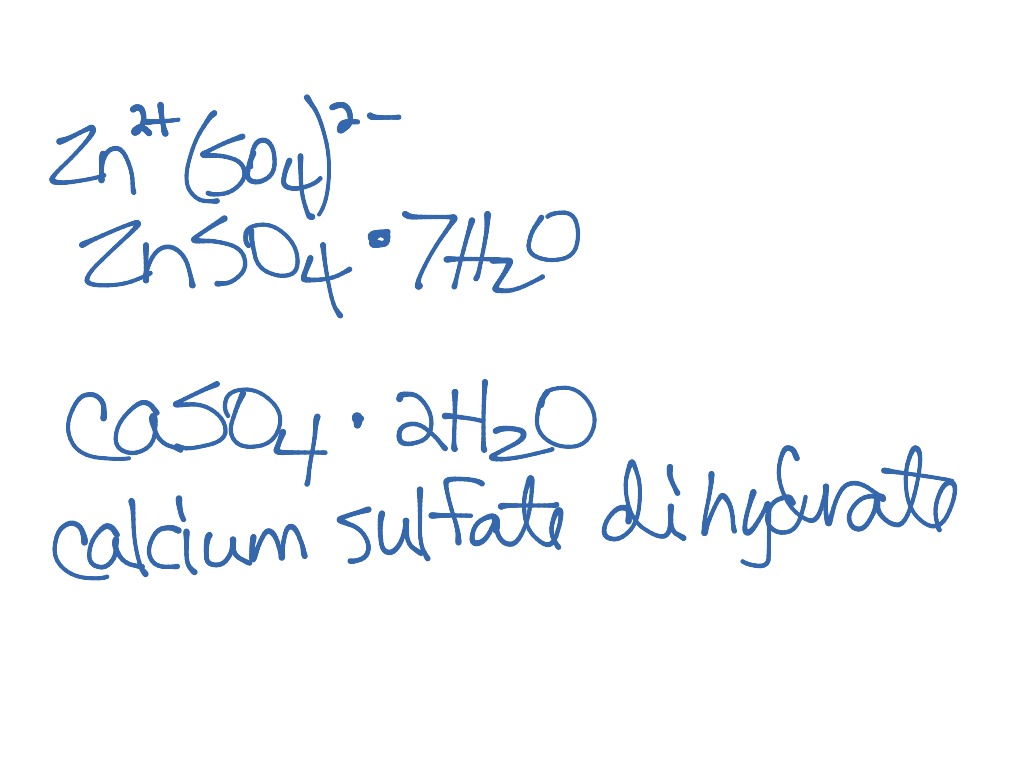 Zn²⁺(SO₄)²⁻
ZnSO₄ · 7H₂O
CaSO₄ · 2H₂O
calcium sulfate dihydrate